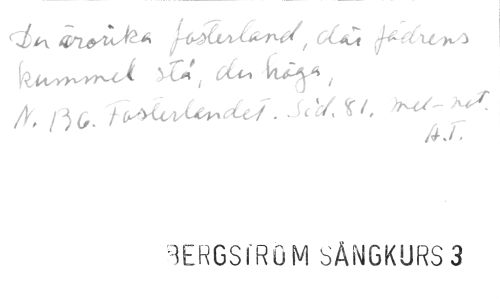 Du ärorika fosterland, där fädrens
kummel stå, du höga,
N. 136. Fosterlandet. Sid. 81. mel-not.
A.T.
BERGSTRÖM SÅNGKURS 3